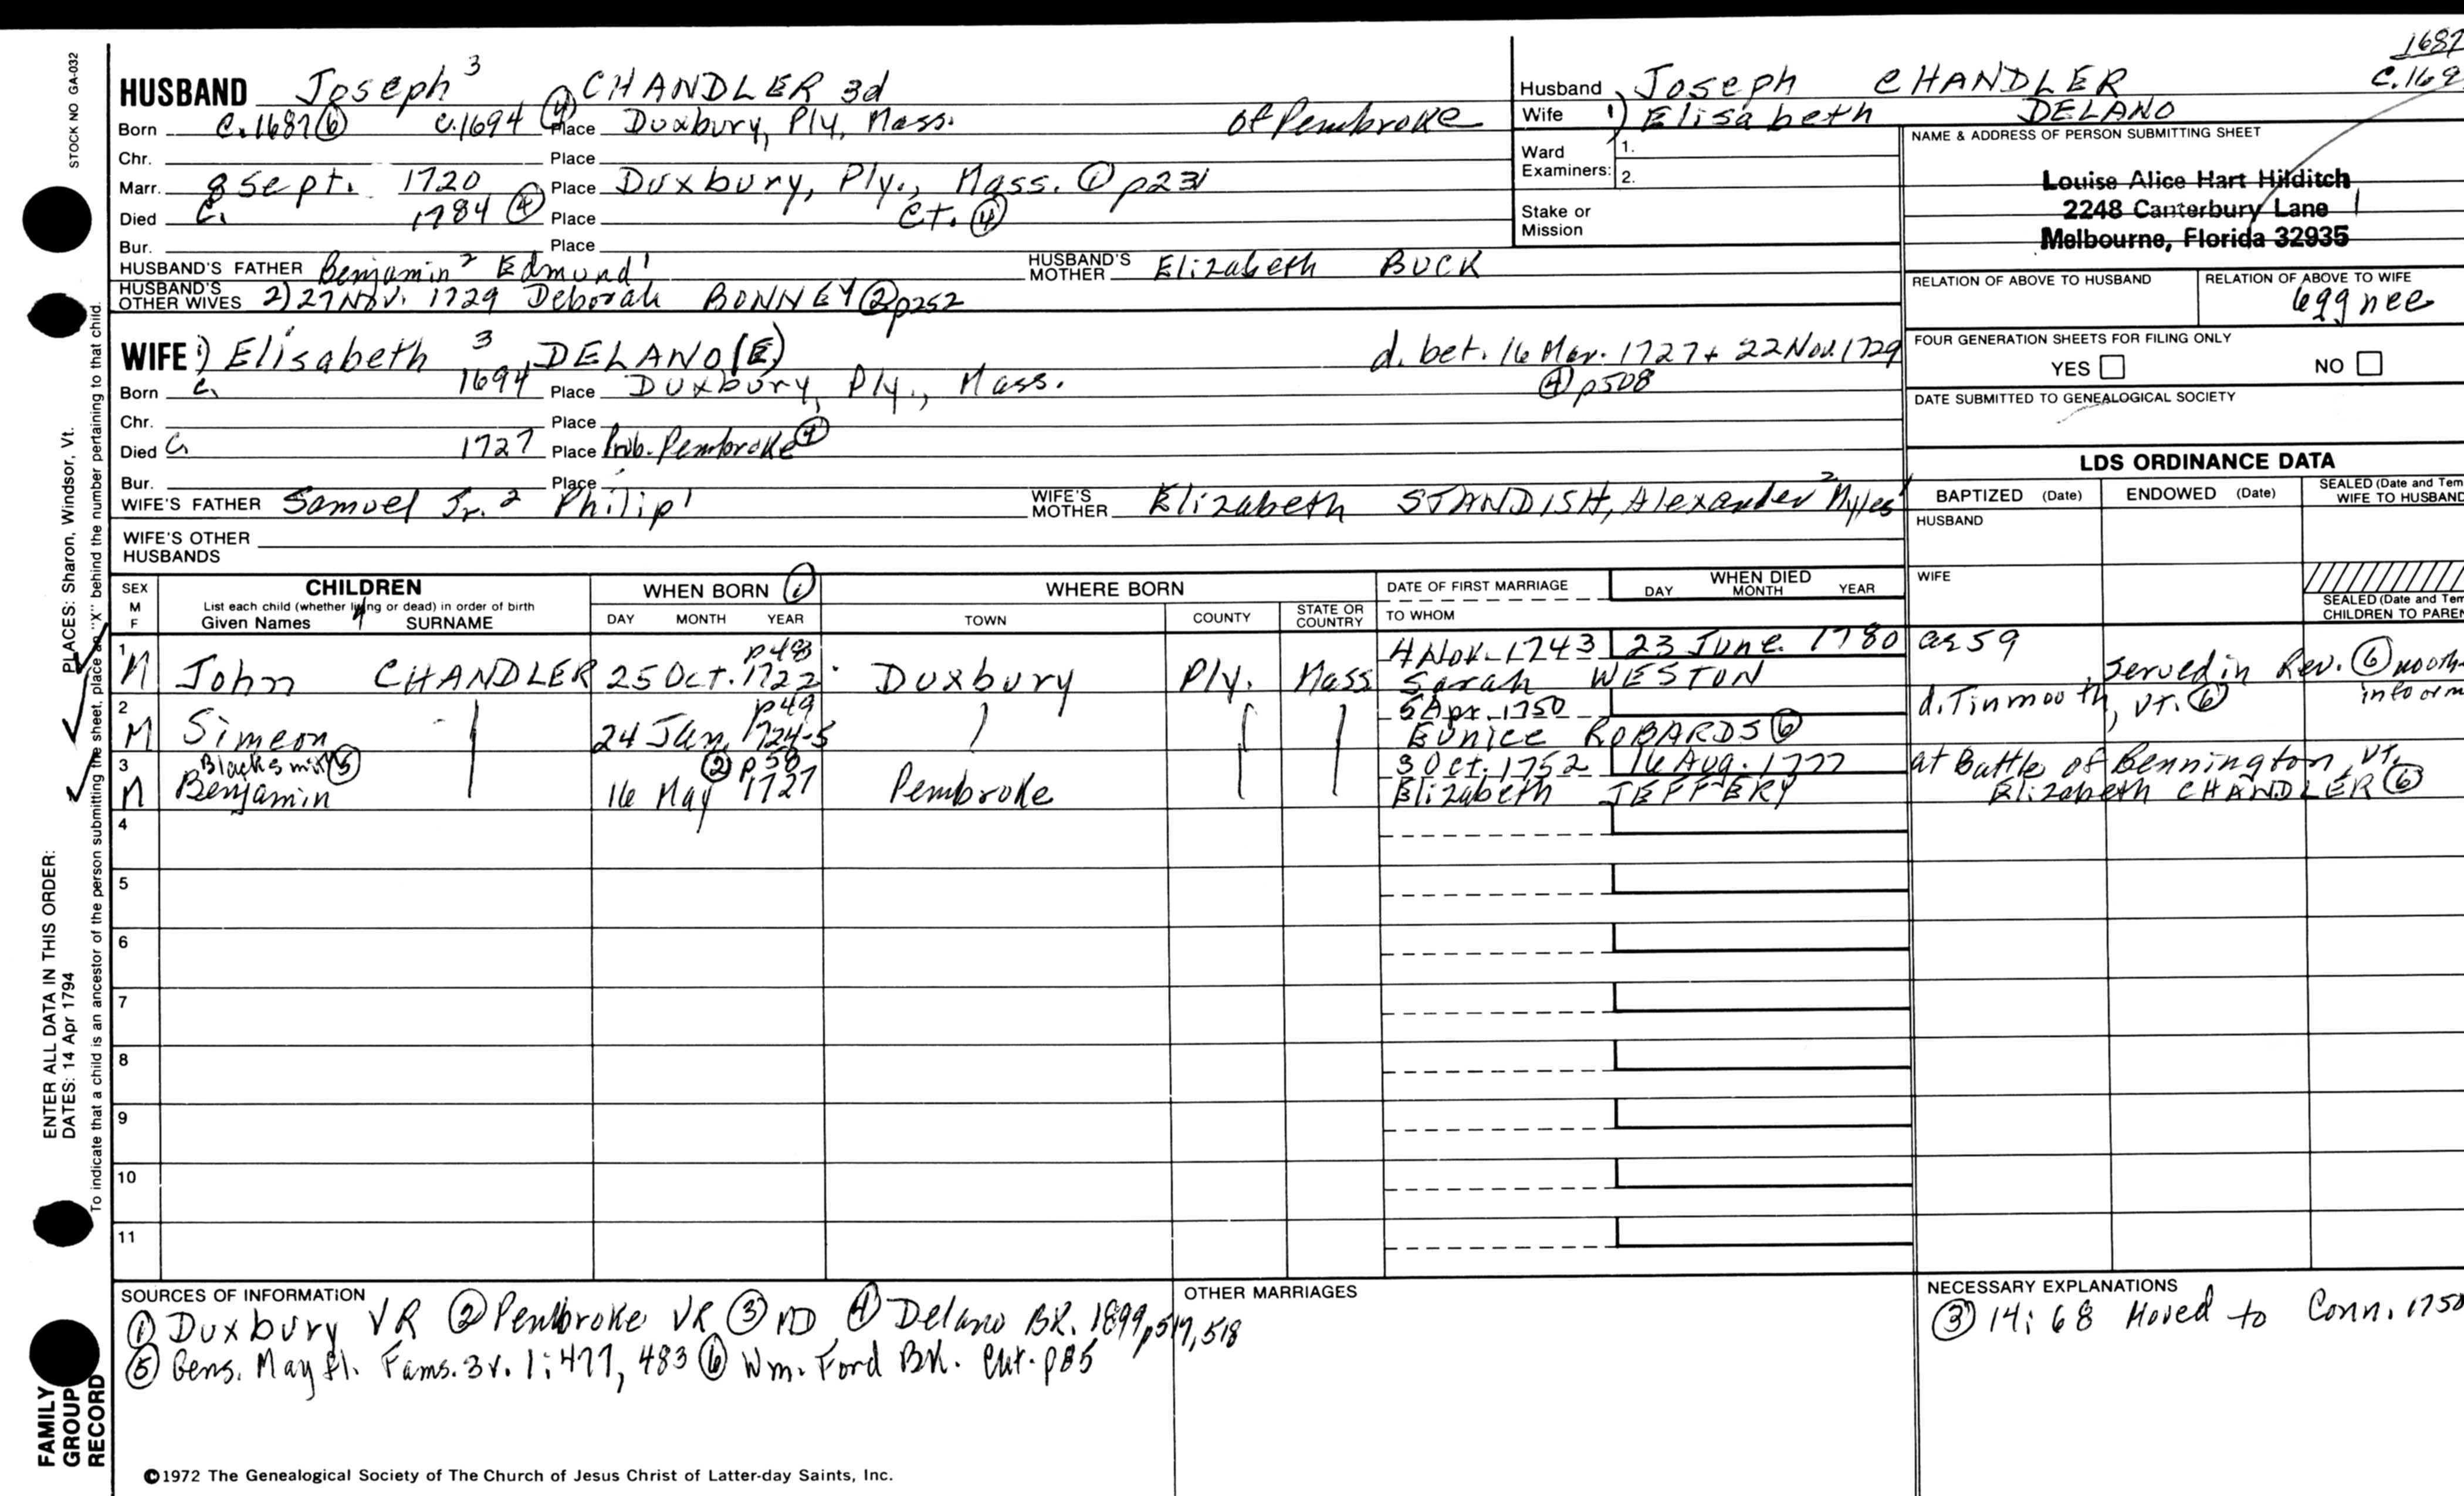 STOCK NO GA-032
PLACES: Sharon, Windsor, Vt.
ENTER ALL DATA IN THIS ORDER:
DATES: 14 Apr 1794
To indicate that a child is an ancestor of the person submitting the sheet, place an "X" behind the number pertaining to that child.
FAMILY
GROUP
RECORD
HUSBAND Joseph 3 CHANDLER 3d
Born c.1687 ⑥ c.1694 ④ Place Duxbury, Ply, Mass. of Pembroke
Chr. Place
Marr. 8 Sept. 1720 Place Duxbury, Ply., Mass. ① p231
Died c. 1784 ④ Place Ct. ④
Bur. Place
HUSBAND'S FATHER Benjamin 2 Edmund 1 HUSBAND'S MOTHER Elizabeth BUCK
HUSBAND'S OTHER WIVES 2) 27 Nov. 1729 Deborah BONNEY ② p252
WIFE 1) Elisabeth 3 DELANO(E) d. bet. 16 Mar. 1727 + 22 Nov. 1729
Born c. 1694 Place Duxbury, Ply., Mass. ④ p508
Chr. Place
Died c. 1727 Place Prob. Pembroke ④
Bur. Place
WIFE'S FATHER Samuel Jr. 2 Philip 1 WIFE'S MOTHER Elizabeth STANDISH, Alexander 2 Myles 1
WIFE'S OTHER HUSBANDS
1687
Husband Joseph CHANDLER c.169
Wife 1) Elisabeth DELANO
Ward Examiners: 1.
2.
Stake or Mission
NAME & ADDRESS OF PERSON SUBMITTING SHEET
Louise Alice Hart Hilditch
2248 Canterbury Lane
Melbourne, Florida 32935
RELATION OF ABOVE TO HUSBAND RELATION OF ABOVE TO WIFE
6ggnee
FOUR GENERATION SHEETS FOR FILING ONLY
YES NO
DATE SUBMITTED TO GENEALOGICAL SOCIETY
LDS ORDINANCE DATA
BAPTIZED (Date) ENDOWED (Date) SEALED (Date and Tem
WIFE TO HUSBAND
HUSBAND
WIFE
SEALED (Date and Tem
CHILDREN TO PAREN
SEX M F CHILDREN WHEN BORN ① WHERE BORN DATE OF FIRST MARRIAGE WHEN DIED
List each child (whether living or dead) in order of birth
Given Names SURNAME DAY MONTH YEAR TOWN COUNTY STATE OR COUNTRY TO WHOM DAY MONTH YEAR
1 p48 4 Nov. 1743 23 June 1780 ae 59
M John CHANDLER 25 Oct. 1722 Duxbury Ply. Mass Sarah WESTON served in Rev. ⑥
2 p49 5 Apr. 1750 d. Tinmouth, Vt. ⑥
M Simeon 24 Jan. 1724-5 Eunice ROBARDS ⑥
3 Blacksmith ⑤ ② p58 3 Oct. 1752 16 Aug. 1777 at Battle of Bennington, Vt.
M Benjamin 16 May 1727 Pembroke Elizabeth JEFFERY Elizabeth CHANDLER ⑥
4
5
6
7
8
9
10
11
SOURCES OF INFORMATION
① Duxbury VR ② Pembroke VR ③ MD ④ Delano BK. 1899, p517, 518
⑤ Gens. Mayfl. Fams. 3v. 1:477, 483 ⑥ Wm. Ford BK. Cht. p85
OTHER MARRIAGES
NECESSARY EXPLANATIONS
③ 14:68 Moved to Conn. 1750
©1972 The Genealogical Society of The Church of Jesus Christ of Latter-day Saints, Inc.